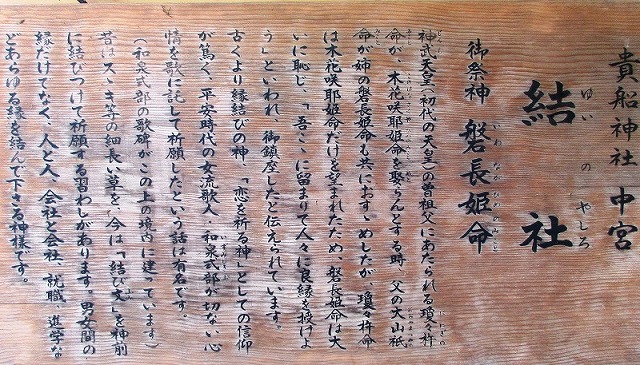 貴船神社 中宮
結社
ゆいのやしろ
御祭神 磐長姫命
いわながひめのみこと
神武天皇(初代の天皇)の曽祖父にあたられる瓊々杵
命が、木花咲耶姫命を娶らんとする時、父の大山祇
命が姉の磐長姫命も共におすゝめしたが、瓊々杵命
は木花咲耶姫命だけを望まれたため、磐長姫命は大
いに恥じ、「吾ここに留まりて人々に良縁を授けよ
う」といわれ、御鎮座したと伝えられています。
古くより縁結びの神、「恋を祈る神」としての信仰
が篤く、平安時代の女流歌人 和泉式部が切ない心
情を歌に託して祈願したという話は有名です。
(和泉式部の歌碑がこの上の境内に建っています)
昔はスゝキ等の細長い草を、今は「結び文」を神前
に結びつけて祈願する習わしがあります。男女間の
縁だけでなく、人と人、会社と会社、就職、進学な
どあらゆる縁を結んで下さる神様です。